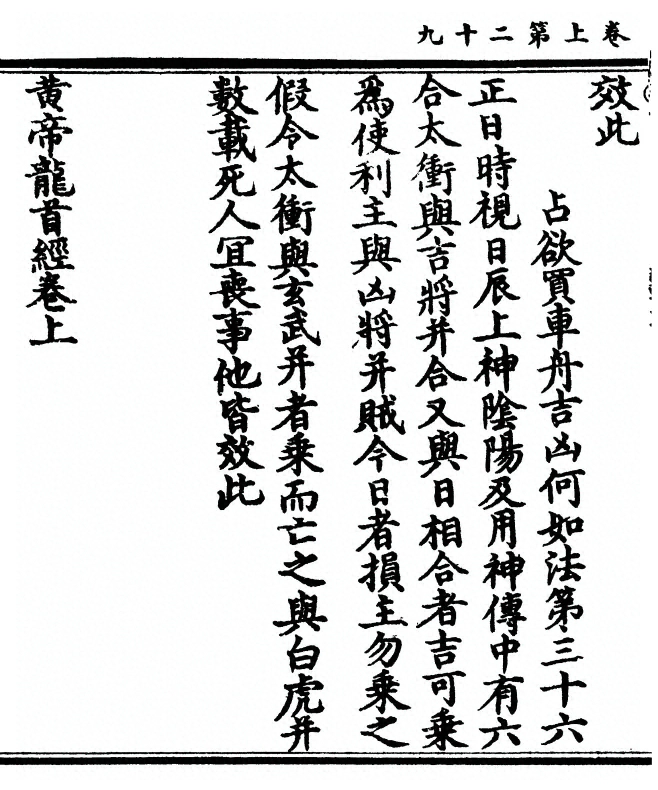 卷上第二十九
效此
占欲買車舟吉凶何如法第三十六
正日時視日辰上神陰陽及用神傳中有六
合太衝與吉將并合又與日相合者吉可乗
爲使利主與凶將并賊今日者損主勿乗之
假令太衝與玄武并者乗而亡之與白虎并
數載死人冝喪事他皆效此
黄帝龍首經卷上